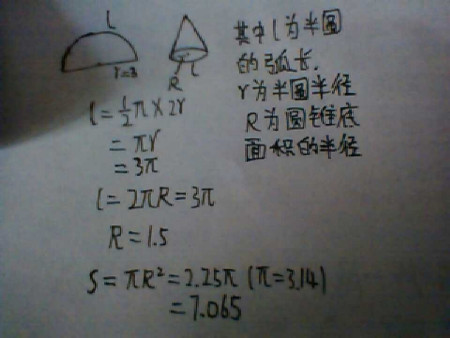 l
r=3
R
l
其中l为半圆
的弧长.
r为半圆半径
R为圆锥底
面积的半径
l=½π×2r
=πr
=3π
l=2πR=3π
R=1.5
S=πR²=2.25π(π=3.14)
=7.065